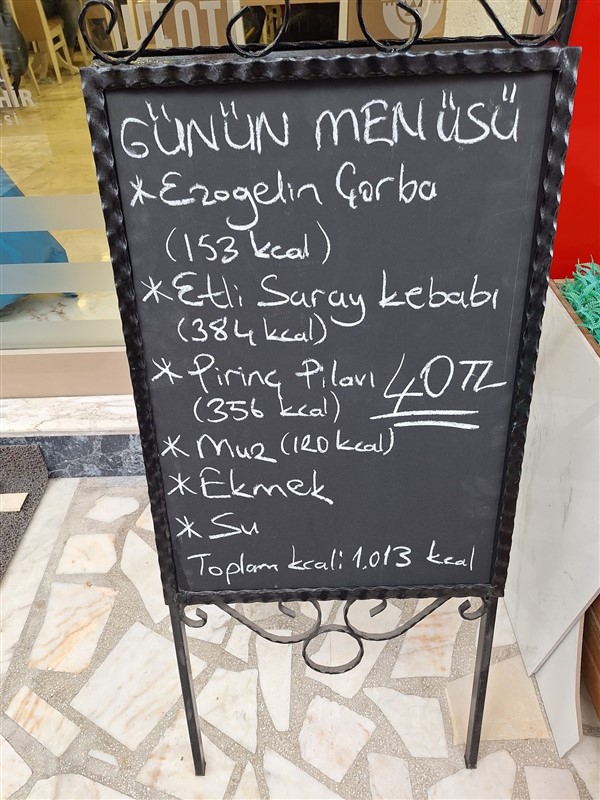 GÜNÜN MENÜSÜ
*Ezogelin Çorba
(153 kcal)
*Etli Saray kebabı
(384 kcal)
*Pirinç Pilavı 40TL
(356 kcal)
*Muz (120 kcal)
*Ekmek
*Su
Toplam kcal: 1.013 kcal